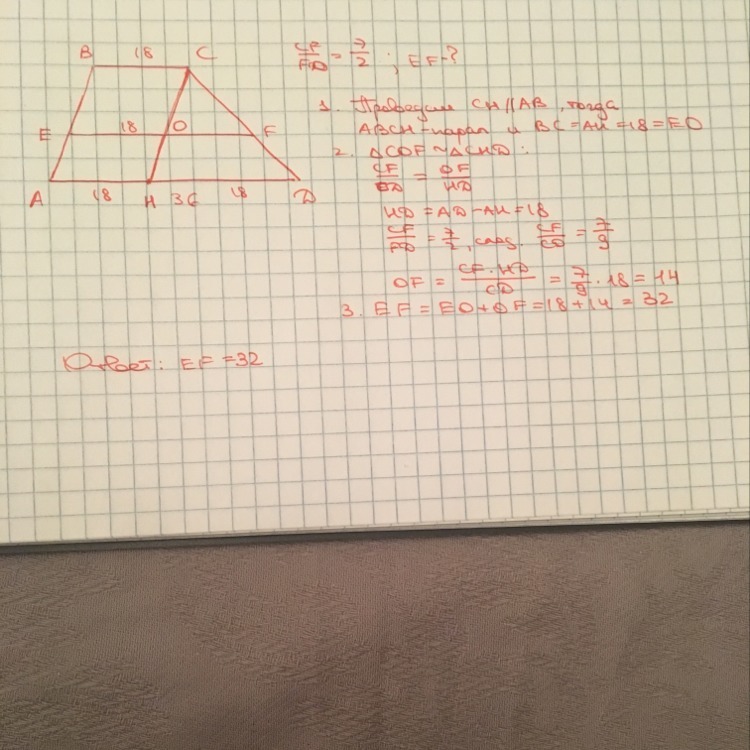 B 18 C
E 18 O F
A 18 H 36 18 D
CF/FD = 7/2 ; EF-?
1. Проведем CH//AB, тогда
ABCH-парал и BC=AH=18=EO
2. △COF ~ △CHD:
CF/CD = OF/HD
HD = AD-AH=18
CF/FD = 7/2, след. CF/CD = 7/9
OF = CF·HD/CD = 7/9 · 18 = 14
3. EF = EO+OF=18+14 = 32
Ответ: EF=32